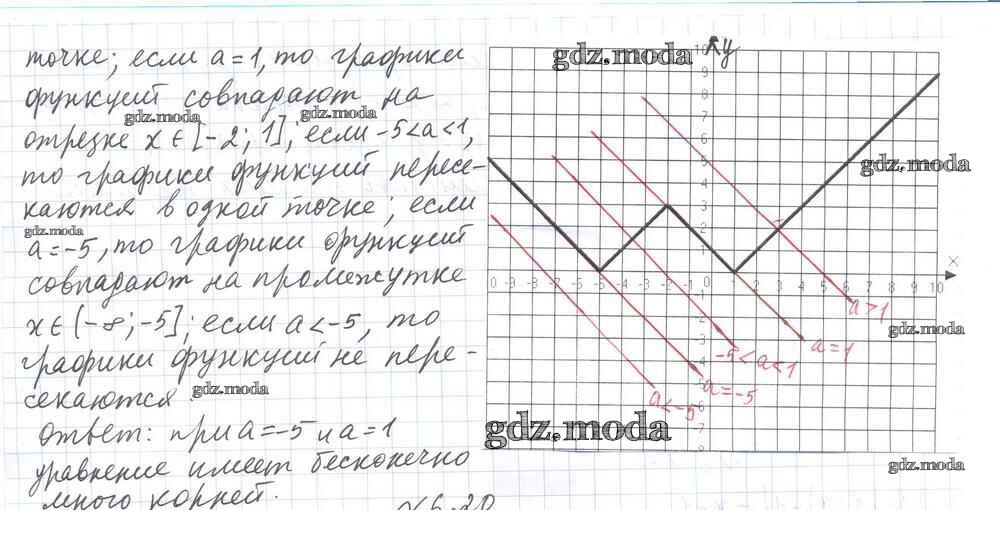 точке; если a=1, то графики
функций совпадают на
отрезке x∈[-2; 1]; если -5<a<1,
то графики функций пересе-
каются в одной точке; если
a=-5, то графики функций
совпадают на промежутке
x∈(-∞;-5]; если a<-5, то
графики функций не пере-
секаются.
Ответ: при a=-5 и a=1
уравнение имеет бесконечно
много корней.
gdz.moda
gdz.moda
gdz.moda
gdz.moda
gdz.moda
gdz.moda
gdz.moda
gdz.moda
gdz.moda
y
x
10
9
8
7
6
5
4
3
2
1
0 -9 -8 -7 -6 -5 -4 -3 -2 -1 0 1 2 3 4 5 6 7 8 9 10
a>1
a=1
-5<a<1
a=-5
a<-5